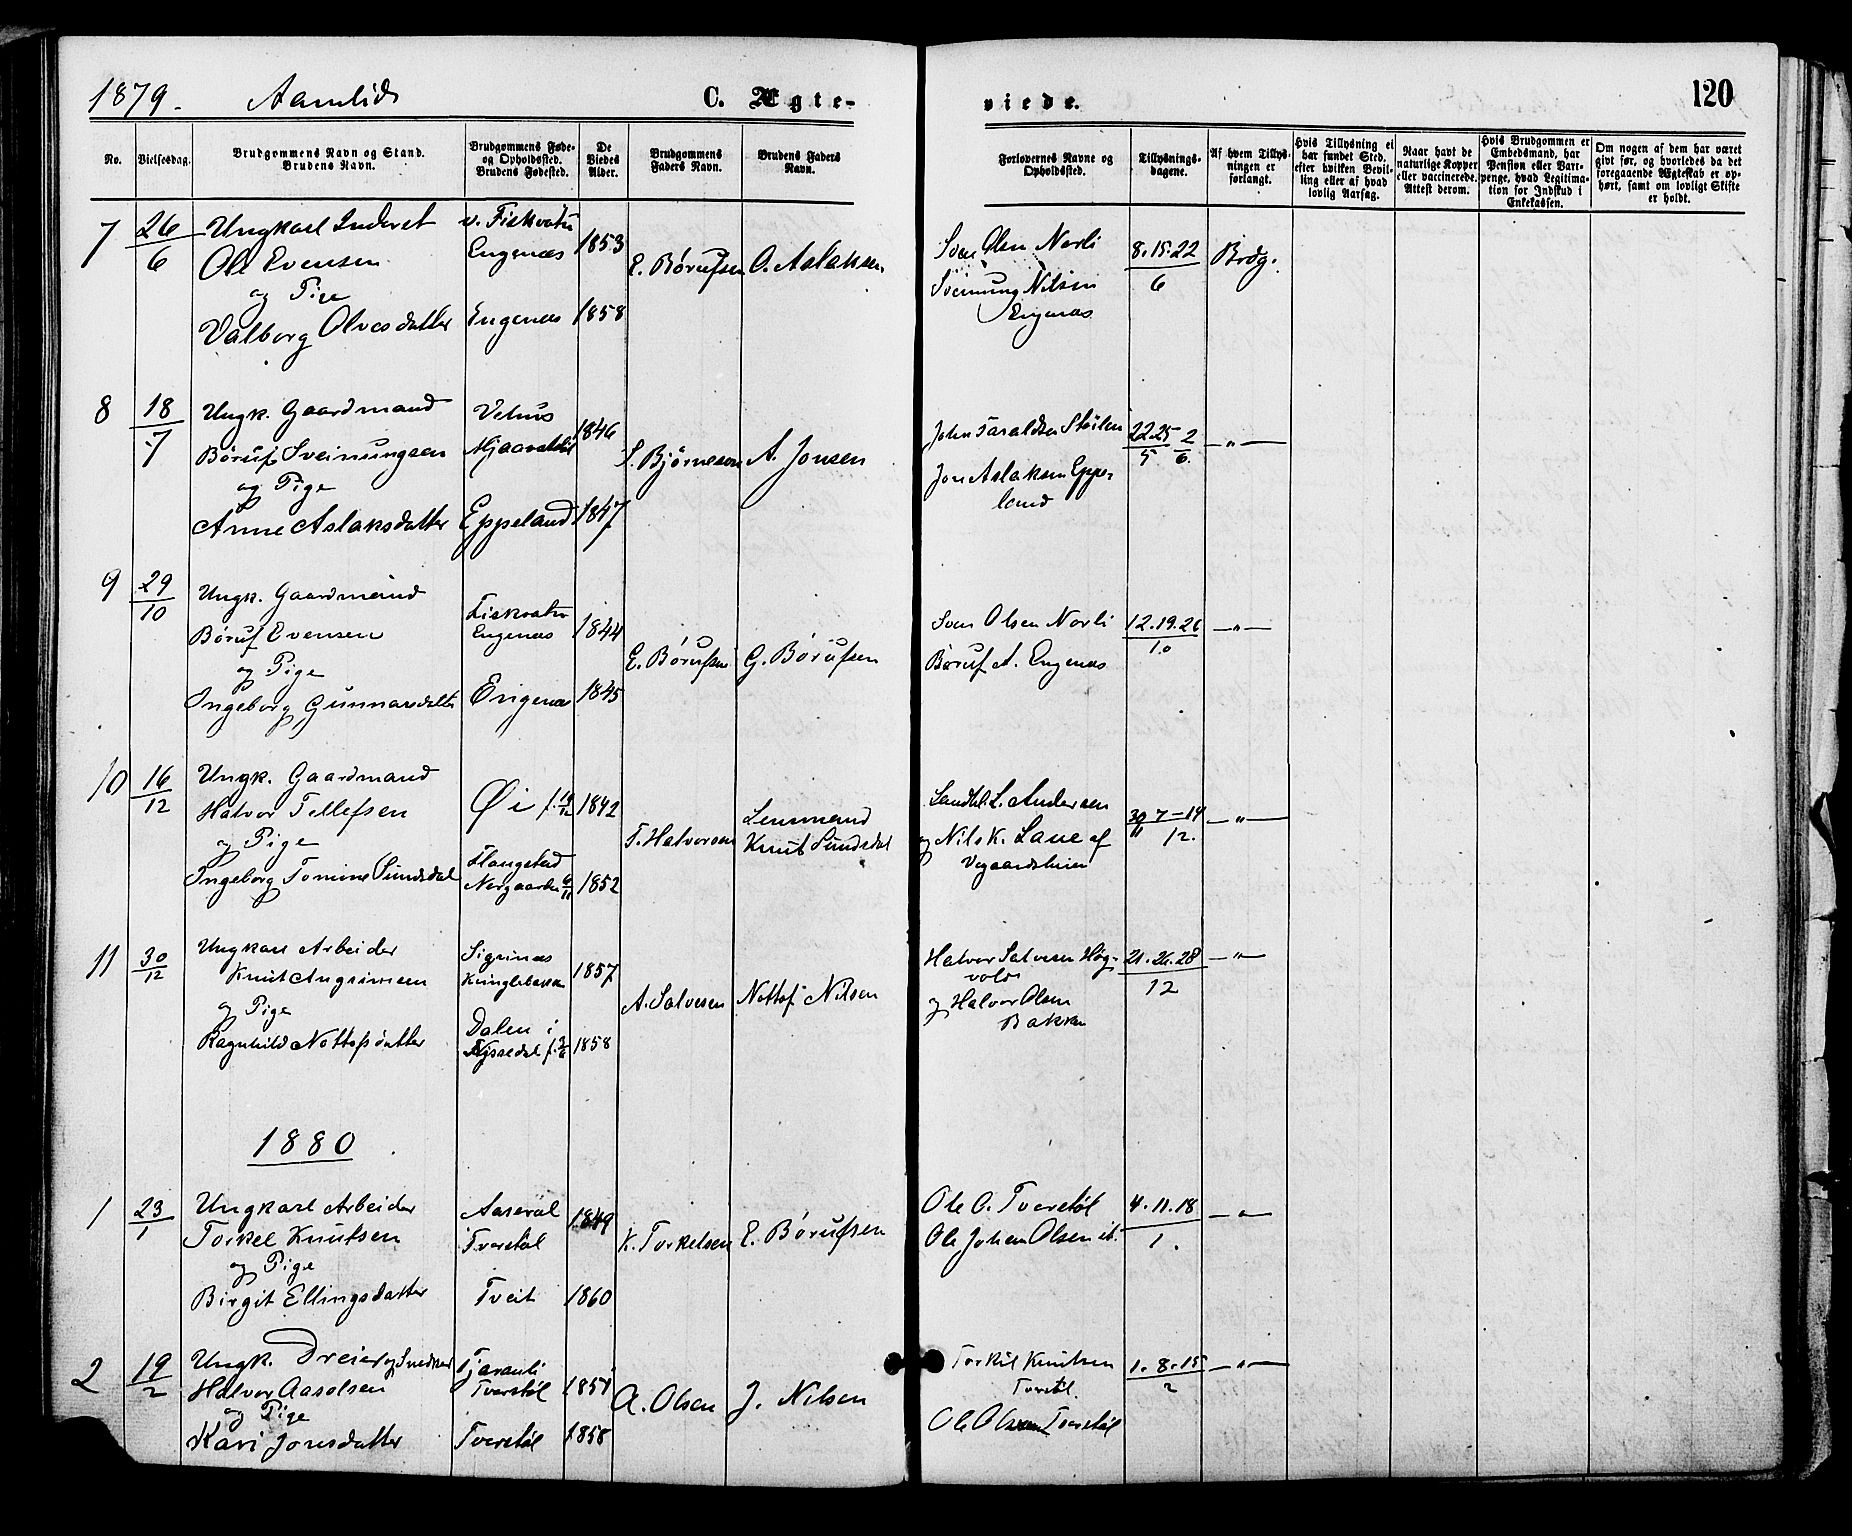 1879. Aamlid C. Ægte- viede. 120
No.
Vielsesdag.
Brudgommens Navn og Stand.
Brudens Navn.
Brudgommens Føde-
og Opholdssted.
Brudens Fødested.
De
Viedes
Alder.
Brudgommens
Faders Navn.
Brudens Faders
Navn.
Forlovernes Navne og
Opholdssted.
Tillysnings-
dagene.
Af hvem Tillys-
ningen er
forlangt.
Hvis Tillysning ei
har fundet Sted,
efter hvilken Bevil-
ling eller af hvad
lovlig Aarsag.
Naar havt de
naturlige Kopper
eller vaccinerede.
Attest derom.
Hvis Brudgommen er
Embedsmand, har
Pension eller Vart-
penge, hvad Legitima-
tion for Indskud i
Enkekassen.
Om nogen af dem har været
gift før, og hvorledes da det
foregaaende Ægteskab er op-
hørt, samt om lovligt Skifte
er holdt.
7 26/6
Ungkarl Inderst
Ole Evensen
og Pige
Valborg Olvesdatter
v. Fiskvatn
Engenæs
Engenæs
1853
1858
E. Børufsen
O. Aslaksen
Sven Olsen Norli
Sveinung Nilsen
Engenæs
8.15.22
6
Brdg.
8 18/7
Ungk. Gaardmand
Børuf Sveinungsen
og Pige
Anne Aslaksdatter
Vehus
Eppeland
1846
1847
S. Bjørnsson
A. Jonsen
John Taraldsen Støilen
Jon Aslaksen Eppe-
land
22.25/5 2/6
—„—
9 29/10
Ungk. Gaardmand
Børuf Evensen
og Pige
Ingeborg Gunnarsdatter
Fiskvatn
Engenæs
Engenæs
1844
1845
E. Børufsen
G. Børufsen
Sven Olsen Norli
Børuf A. Engenæs
12.19.26
10
—„—
10 16/12
Ungk. Gaardmand
Halvor Tellefsen
og Pige
Ingeborg Tomine Sundsdal
Øi
Flangstad
1842
1852
T. Halvorsen
Lensmand
Knut Sundsdal
Landhl. L. Andersen
og Nils K. Lane af
Vegaardsheien
30/11 7–14/12.
—„—
11 30/12
Ungkarl Arbeider
Knut Angrimsen
og Pige
Ragnhild Nottofsdatter
Signæs
Kringlebakken
Dalen i
Nissedal
1857
1858
A. Salvesen
Nottof Nilsen
Halvor Salvesen Høg-
vold
og Halvor Olsen
Bakken
21.26.28
12
—„—
1880
1 23/1
Ungkarl Arbeider
Torkel Knutsen
og Pige
Birgit Ellingsdatter
Aaseral
Tveretøl
Tveit
1849
1860
K. Torkelsen
E. Børufsen
Ole O. Tveretøl
Ole Johan Olsen ib.
4.11.18
1.
—„—
2 19/2
Ungk. Dreier og Snedker
Halvor Aasolsen
og Pige
Kari Jonsdatter
Tjæranli
Tveretøl
Tveretøl
1851
1858
A. Olsen
J. Nilsen
Torkil Knutsen
Tveretøl.
Ole Olsen Tveretøl
1.8.15
2
—„—